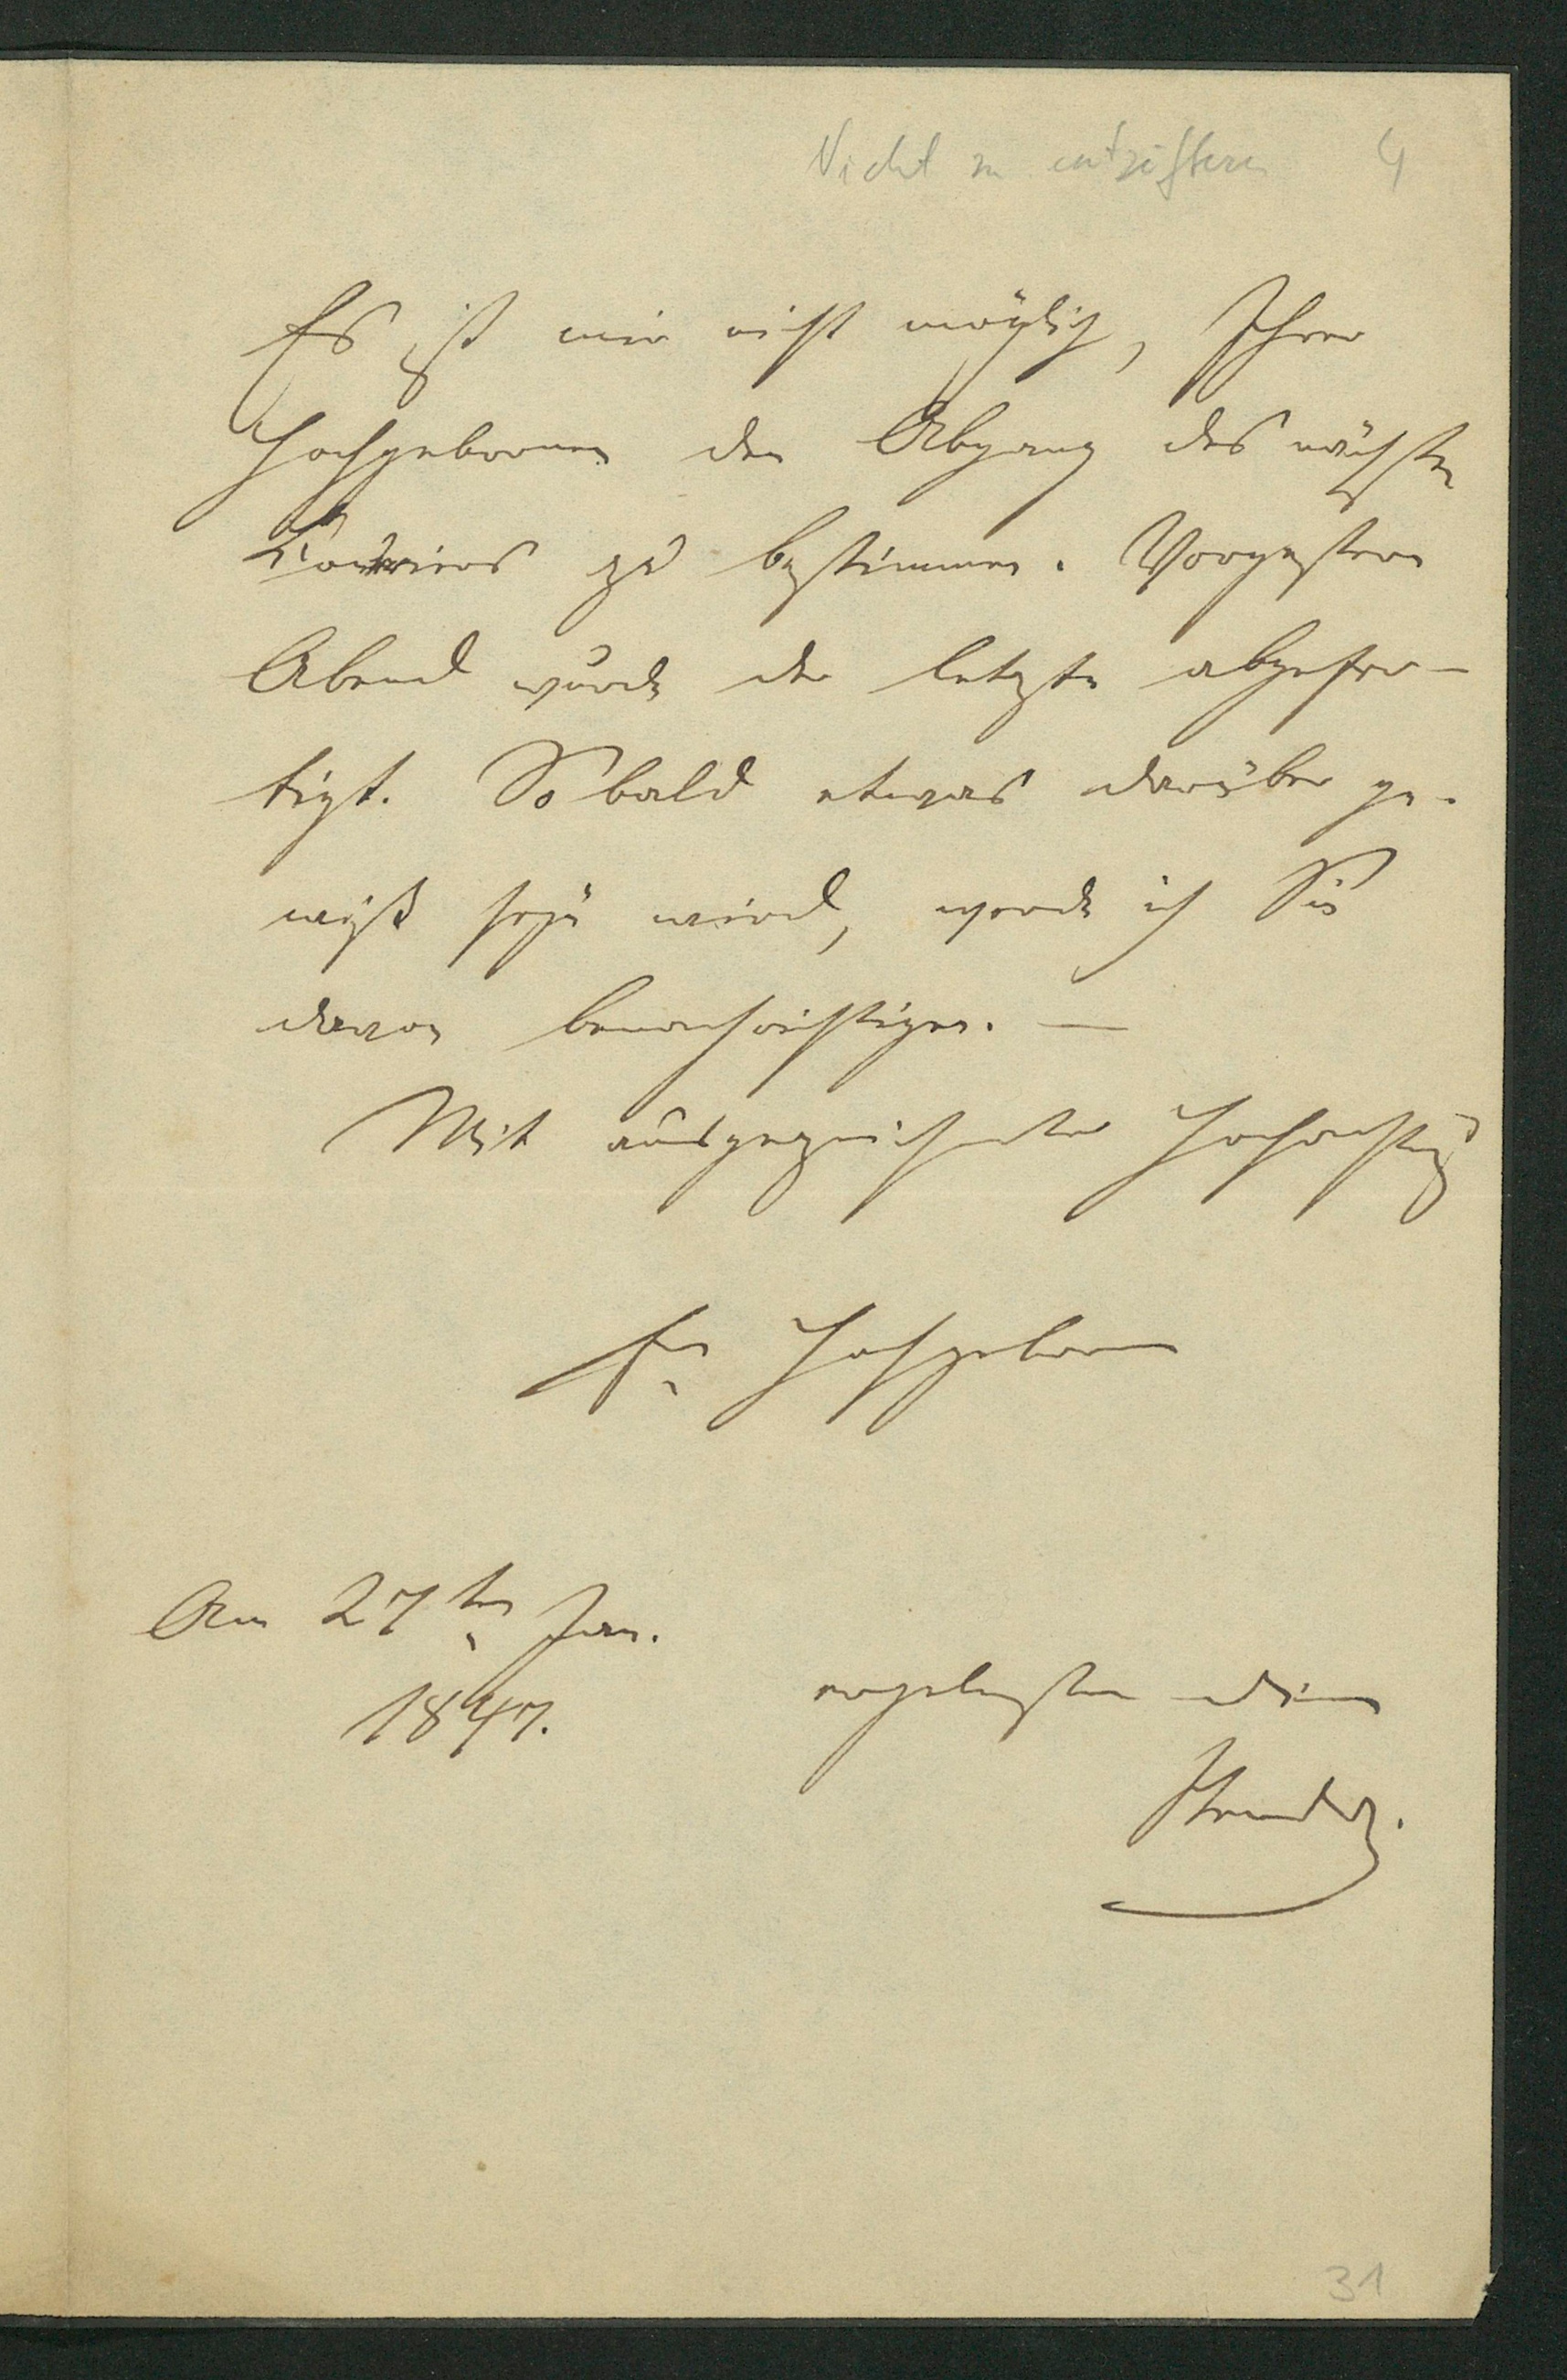 Nicht zu entziffern 4
Es ist mir nicht möglich, Ihnen
Hochgeboren den Abgang des nächsten
Kouriers zu bestimmen. Vorgestern
Abend wurde der letzte abgefer-
tigt. So bald etwas darüber ge-
wiß seyn wird, werde ich Sie
davon benachrichtigen. —
Mit ausgezeichneter Hochachtung
Er. Hochgeboren
Am 27ten Jan.
1847.
ergebenster
31